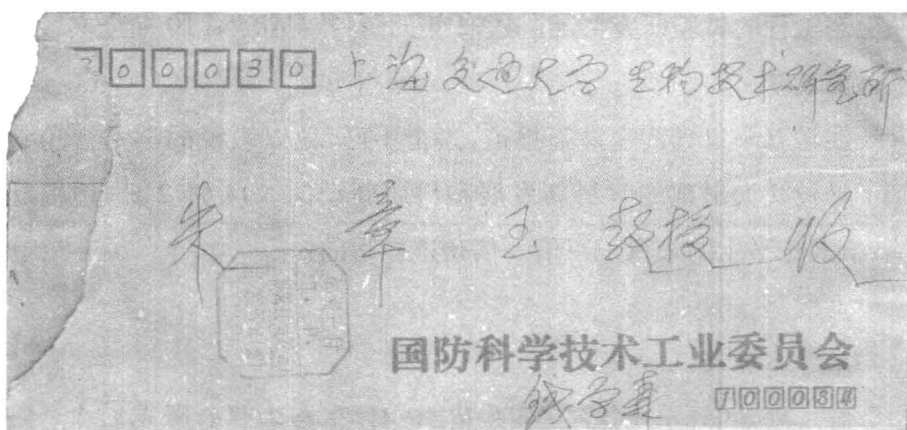 200030 上海交通大学 生物技术研究所
朱章玉 教授 收
国防科学技术工业委员会
钱学森 100034